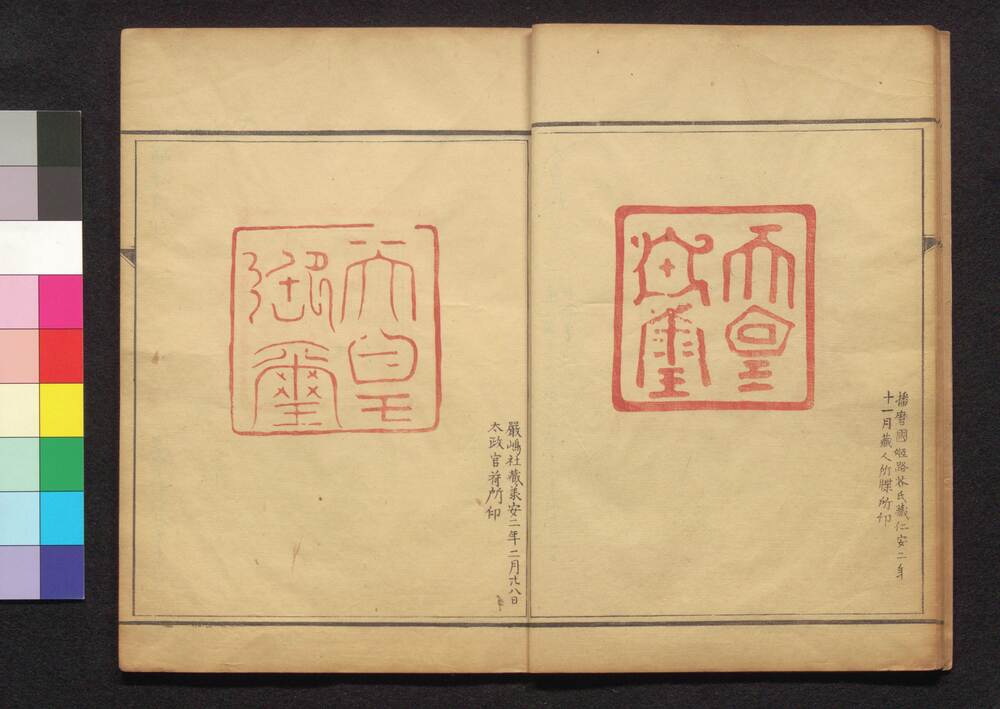 天皇
御璽
播磨國姬路林氏藏仁安二年
十一月藏人所牒所印
天皇
御璽
嚴嶋社藏承安二年二月廿八日
太政官符所印